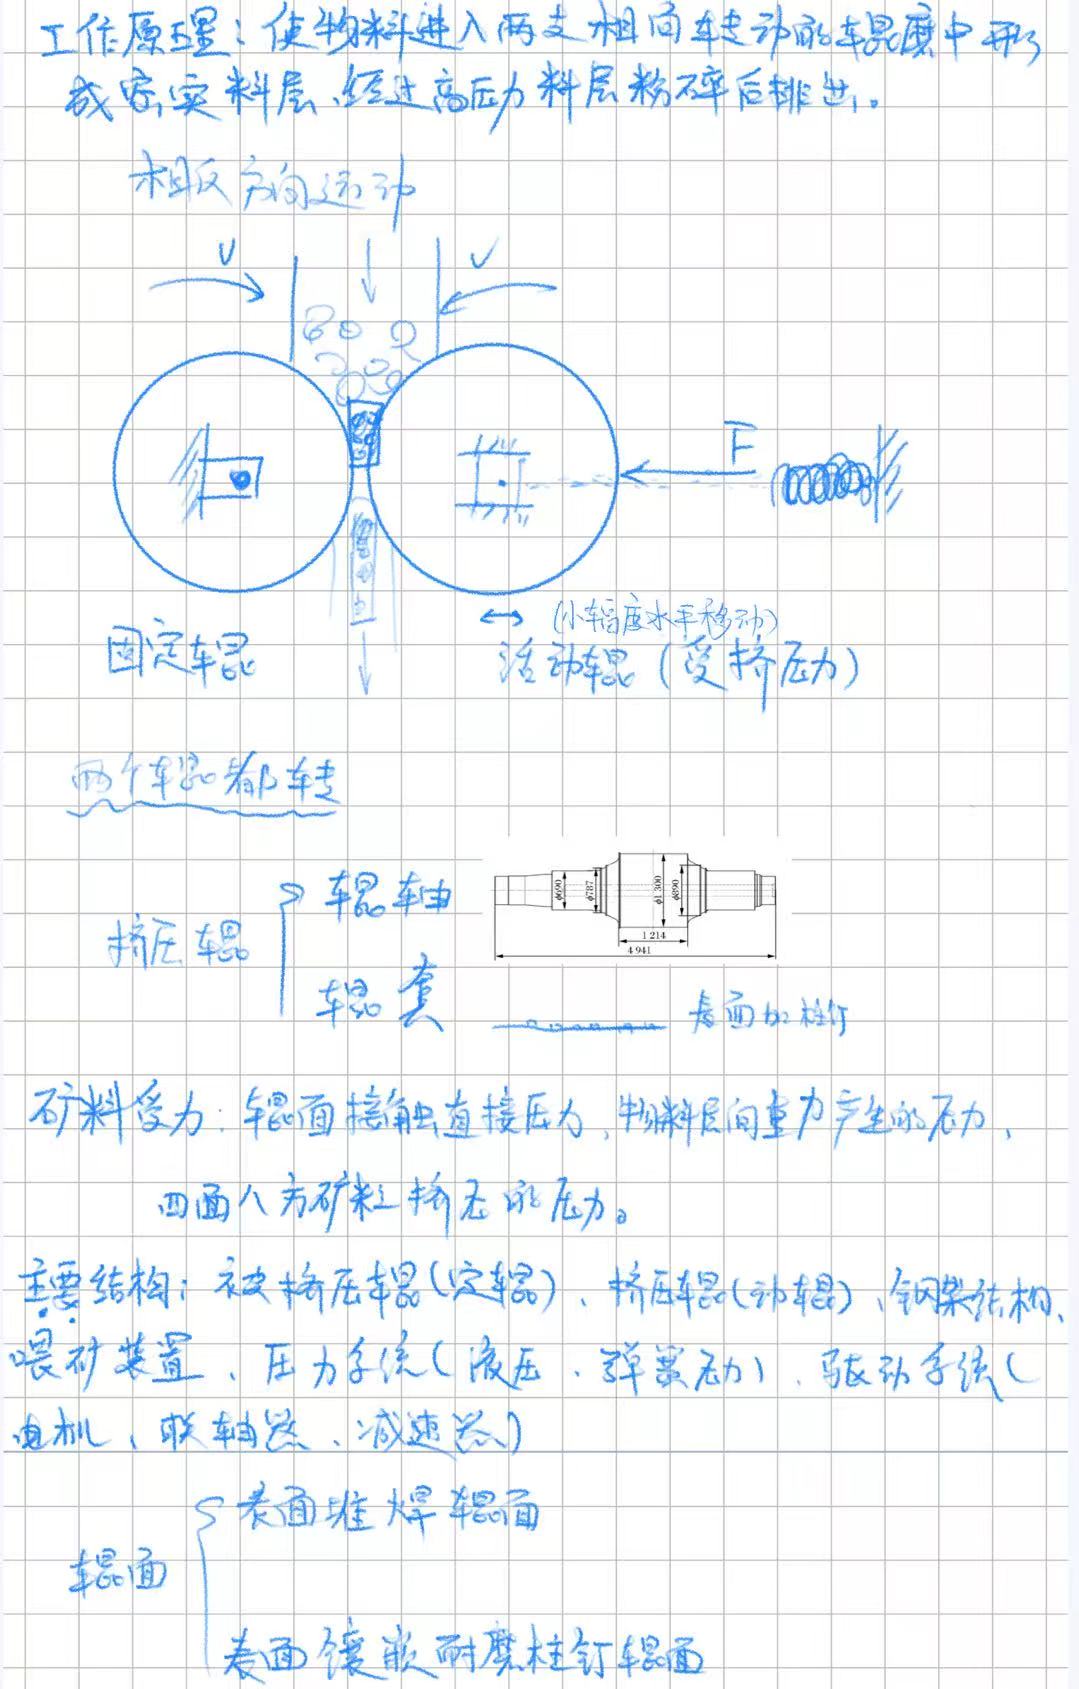 工作原理：使物料进入两支相向转动的辊磨中形
成密实料层、经过高压力料层粉碎后排出。
相反方向运动
V
V
F
(小幅度水平移动)
固定辊
活动辊(受挤压力)
两个辊都转
挤压辊
辊轴
φ690
φ787
φ1 300
φ890
1 214
4 941
辊套
表面加柱钉
矿料受力：辊面接触直接压力、物料层间重力产生的压力、
四面八方矿粒挤压的压力。
主要结构：被挤压辊(定辊)、挤压辊(动辊)、钢架结构、
喂矿装置、压力系统(液压、弹簧力)、驱动系统(
电机、联轴器、减速器)
辊面
表面堆焊辊面
表面镶嵌耐磨柱钉辊面